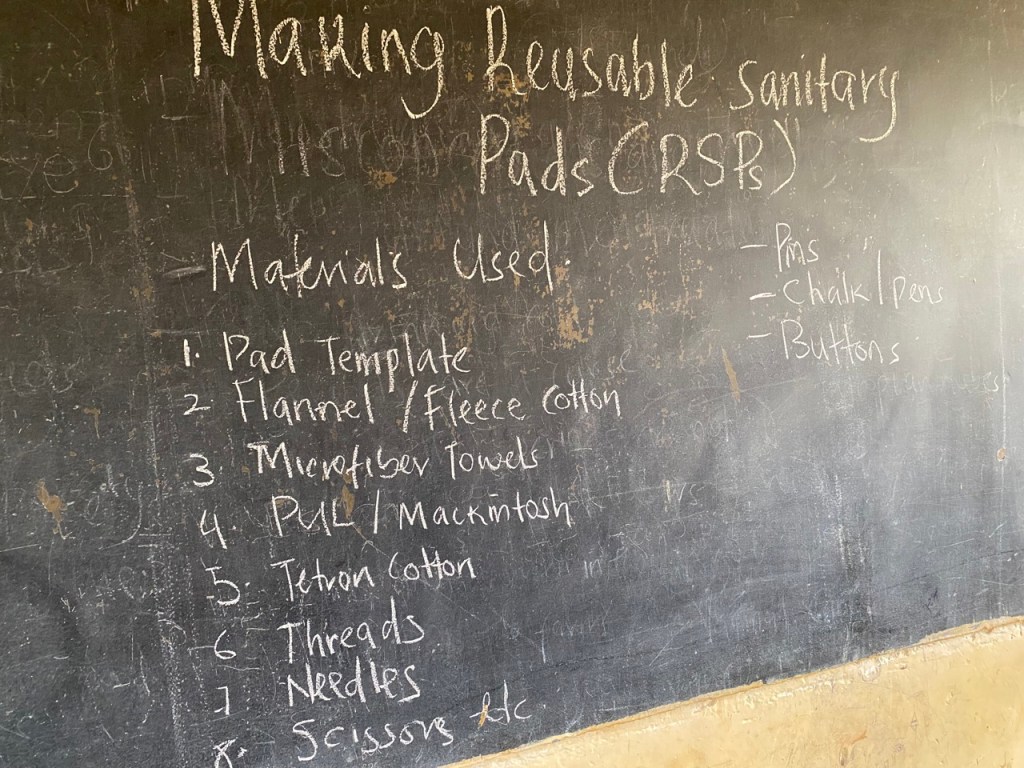 Making Reusable Sanitary
Pads (RSPs)
- Materials Used.
1. Pad Template
2 Flannel / Fleece Cotton
3 Microfiber Towels
4. PUL / Mackintosh
5. Tetron Cotton
6 Threads
7 Needles
8. Scissors etc.
- Pins
- Chalk / pens
- Buttons